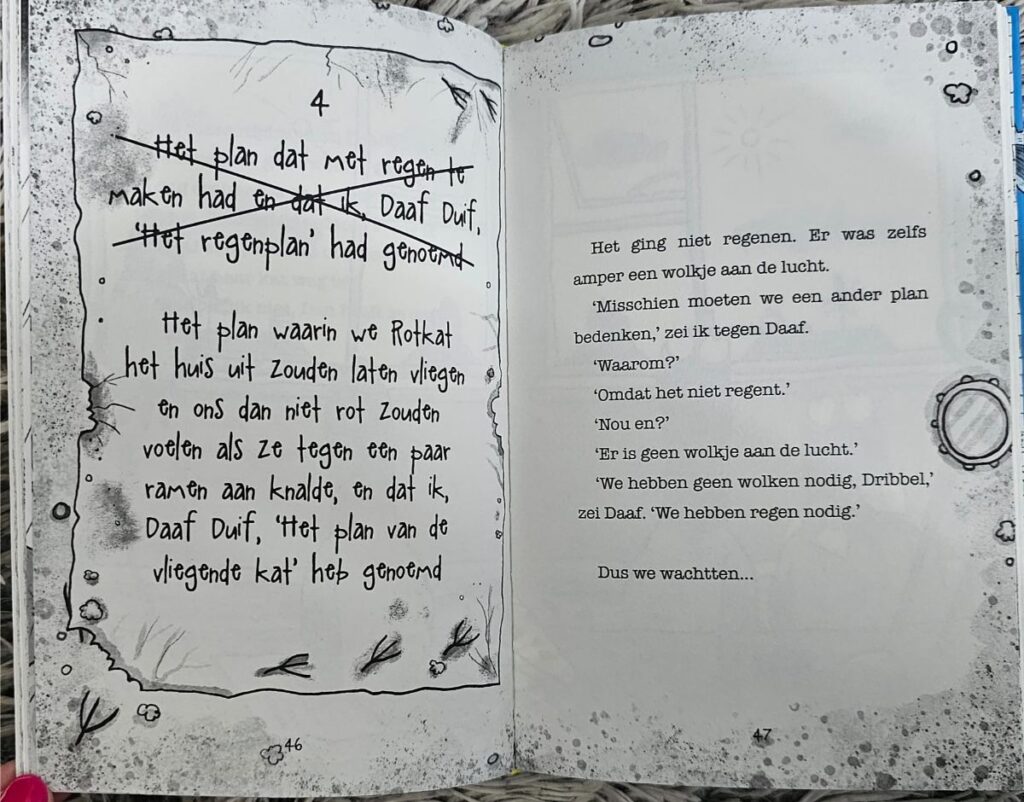 4
Het plan dat met regen te
maken had en dat ik, Daaf Duif,
‘Het regenplan’ had genoemd
Het plan waarin we Rotkat
het huis uit zouden laten vliegen
en ons dan niet rot zouden
voelen als ze tegen een paar
ramen aan knalde, en dat ik,
Daaf Duif, ‘Het plan van de
vliegende kat’ heb genoemd
46
Het ging niet regenen. Er was zelfs
amper een wolkje aan de lucht.
‘Misschien moeten we een ander plan
bedenken,’ zei ik tegen Daaf.
‘Waarom?’
‘Omdat het niet regent.’
‘Nou en?’
‘Er is geen wolkje aan de lucht.’
‘We hebben geen wolken nodig, Dribbel,’
zei Daaf. ‘We hebben regen nodig.’
Dus we wachtten...
47